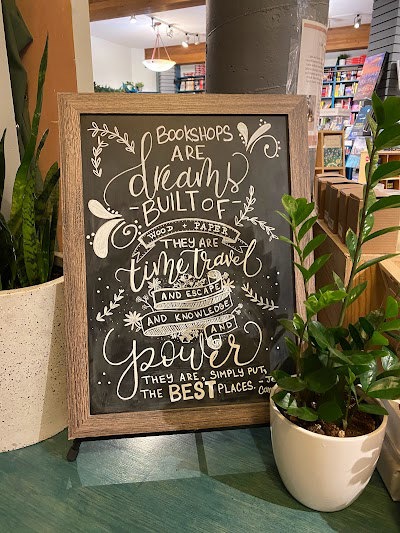 BOOKSHOPS
ARE
dreams
BUILT OF
WOOD + PAPER
THEY ARE
time travel
AND ESCAPE
AND KNOWLEDGE
AND
power
THEY ARE, SIMPLY PUT,
THE BEST PLACES.